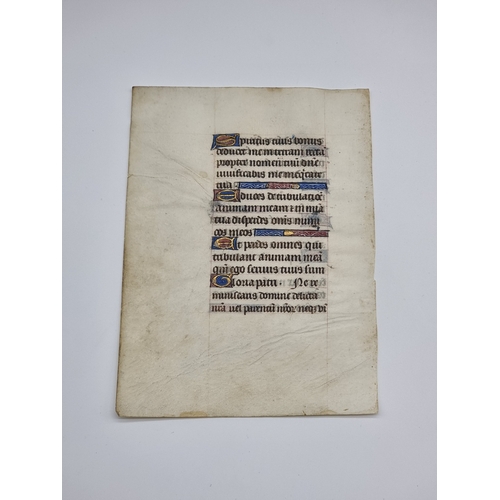 Spiritus tuus bonus
deducet me in terram recta
propter nomen tuu dne
vivificabis me in eqitate
tua
Educes de tribulatioe
animam meam et in mia
tua disperdes oms inimi
cos meos
Et perdes omnes qui
tribulant animam mea
qm ego servus tuus sum
Gloria patri. Ne re
miniscaris domine delicta
nra vel parentu nror neqz vi